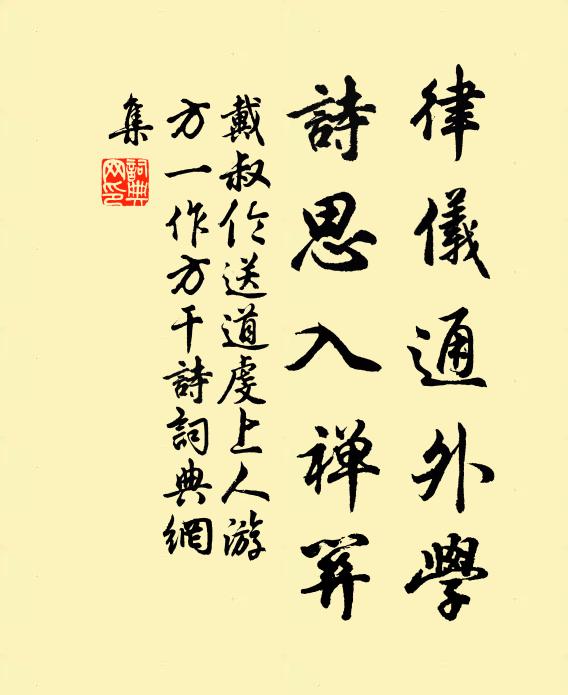 律儀通外學
詩思入禪關
戴叔伦送道虔上人游
方一作方干詩詞典網
集
詞典
网印